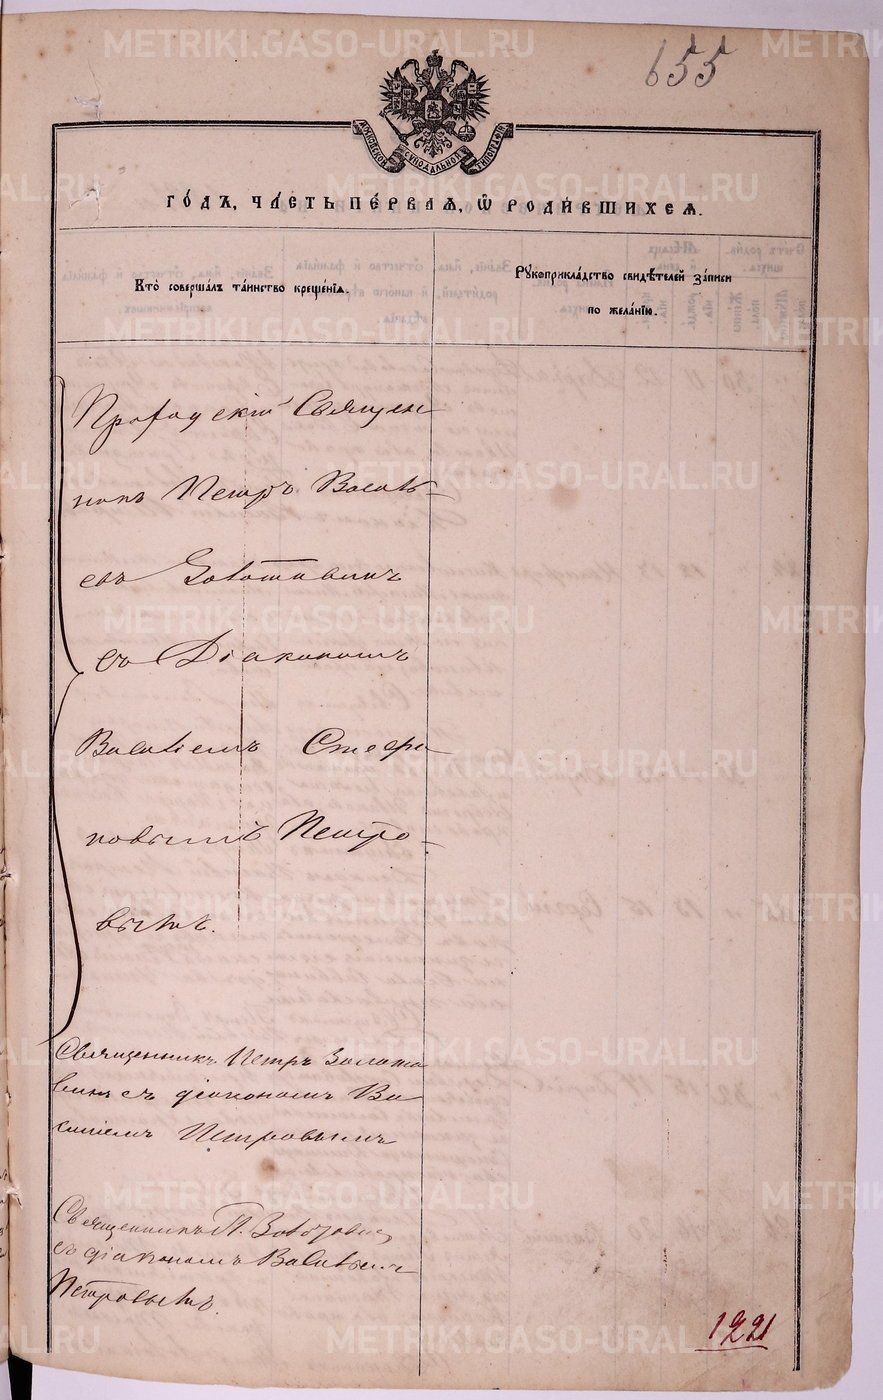 655
МОСКОВСКОЙ СѴНОДАЛЬНОЙ ТИПОГРАФІИ
ГО́ДЪ, ЧА́СТЬ ПЕ́РВАЯ, Ѡ РОДИ́ВШИХСЯ.
Кто̀ соверша́лъ та́инство креще́нїя.
Рукоприкла́дство свидѣ́телей за́писи
по жела́нїю.
Приходскій Священ
никъ Петръ Василь-
евъ Золотавинъ
съ Діакономъ
Василіемъ Стефа-
новымъ Петро-
вымъ.
Священникъ Петръ Золота
винъ съ діакономъ Ва
силіемъ Петровымъ
Священникъ П.
съ діакономъ Василіемъ
Петровымъ.
1221
METRIKI.GASO-URAL.RU